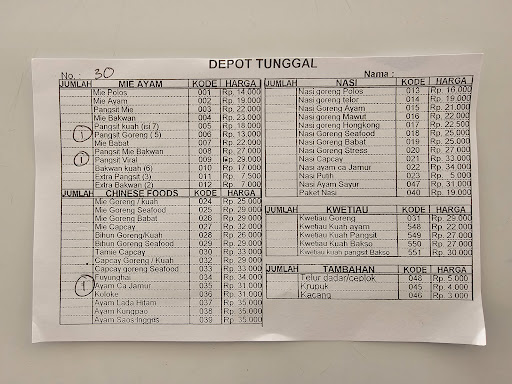 DEPOT TUNGGAL
No. : 30 Nama :
JUMLAH MIE AYAM KODE HARGA
Mie Polos 001 Rp. 14.000
Mie Ayam 002 Rp. 19.000
Pangsit Mie 003 Rp. 22.000
Mie Bakwan 004 Rp. 23.000
Pangsit kuah (isi 7) 005 Rp. 18.000
1 Pangsit Goreng ( 5) 006 Rp. 13.000
Mie Babat 007 Rp. 22.000
Pangsit Mie Bakwan 008 Rp. 27.000
1 Pangsit Viral 009 Rp. 29.000
Bakwan kuah (6) 010 Rp. 17.000
Extra Pangsit (3) 011 Rp. 7.500
Extra Bakwan (2) 012 Rp. 7.000
JUMLAH CHINESE FOODS KODE HARGA
Mie Goreng / Kuah 024 Rp. 25.000
Mie Goreng Seafood 025 Rp. 29.000
Mie Goreng Babat 026 Rp. 29.000
Mie Capcay 027 Rp. 32.000
Bihun Goreng/Kuah 028 Rp. 25.000
Bihun Goreng Seafood 029 Rp. 29.000
Tamie Capcay 030 Rp. 33.000
Capcay Goreng / Kuah 032 Rp. 29.000
Capcay goreng Seafood 033 Rp. 33.000
Fuyunghai 034 Rp. 34.000
1 Ayam Ca Jamur 035 Rp. 31.000
Koloke 036 Rp. 31.000
Ayam Lada Hitam 037 Rp. 35.000
Ayam Kungpao 038 Rp. 35.000
Ayam Saos Ingges 039 Rp. 35.000
JUMLAH NASI KODE HARGA
Nasi goreng Polos 013 Rp. 16.000
Nasi goreng telor 014 Rp. 19.000
Nasi Goreng Ayam 015 Rp. 21.000
Nasi goreng Mawut 016 Rp. 22.000
Nasi goreng Hongkong 017 Rp. 22.500
Nasi Goreng Seafood 018 Rp. 25.000
Nasi Goreng Babat 019 Rp. 25.000
Nasi Goreng Stress 020 Rp. 27.000
Nasi Capcay 021 Rp. 33.000
Nasi ayam ca Jamur 022 Rp. 34.000
Nasi Putih 023 Rp. 5.000
Nasi Ayam Sayur 047 Rp. 31.000
Paket Nasi 040 Rp. 19.000
JUMLAH KWETIAU KODE HARGA
Kwetiau Goreng 031 Rp. 29.000
Kwetiau Kuah ayam 548 Rp. 22.000
Kwetiau Kuah Pangsit 549 Rp. 27.000
Kwetiau Kuah Bakso 550 Rp. 27.000
Kwetiau kuah pangsit Bakso 551 Rp. 30.000
JUMLAH TAMBAHAN KODE HARGA
Telur dadar/ceplok 048 Rp. 5.000
Krupuk 045 Rp. 4.000
Kacang 046 Rp. 3.000